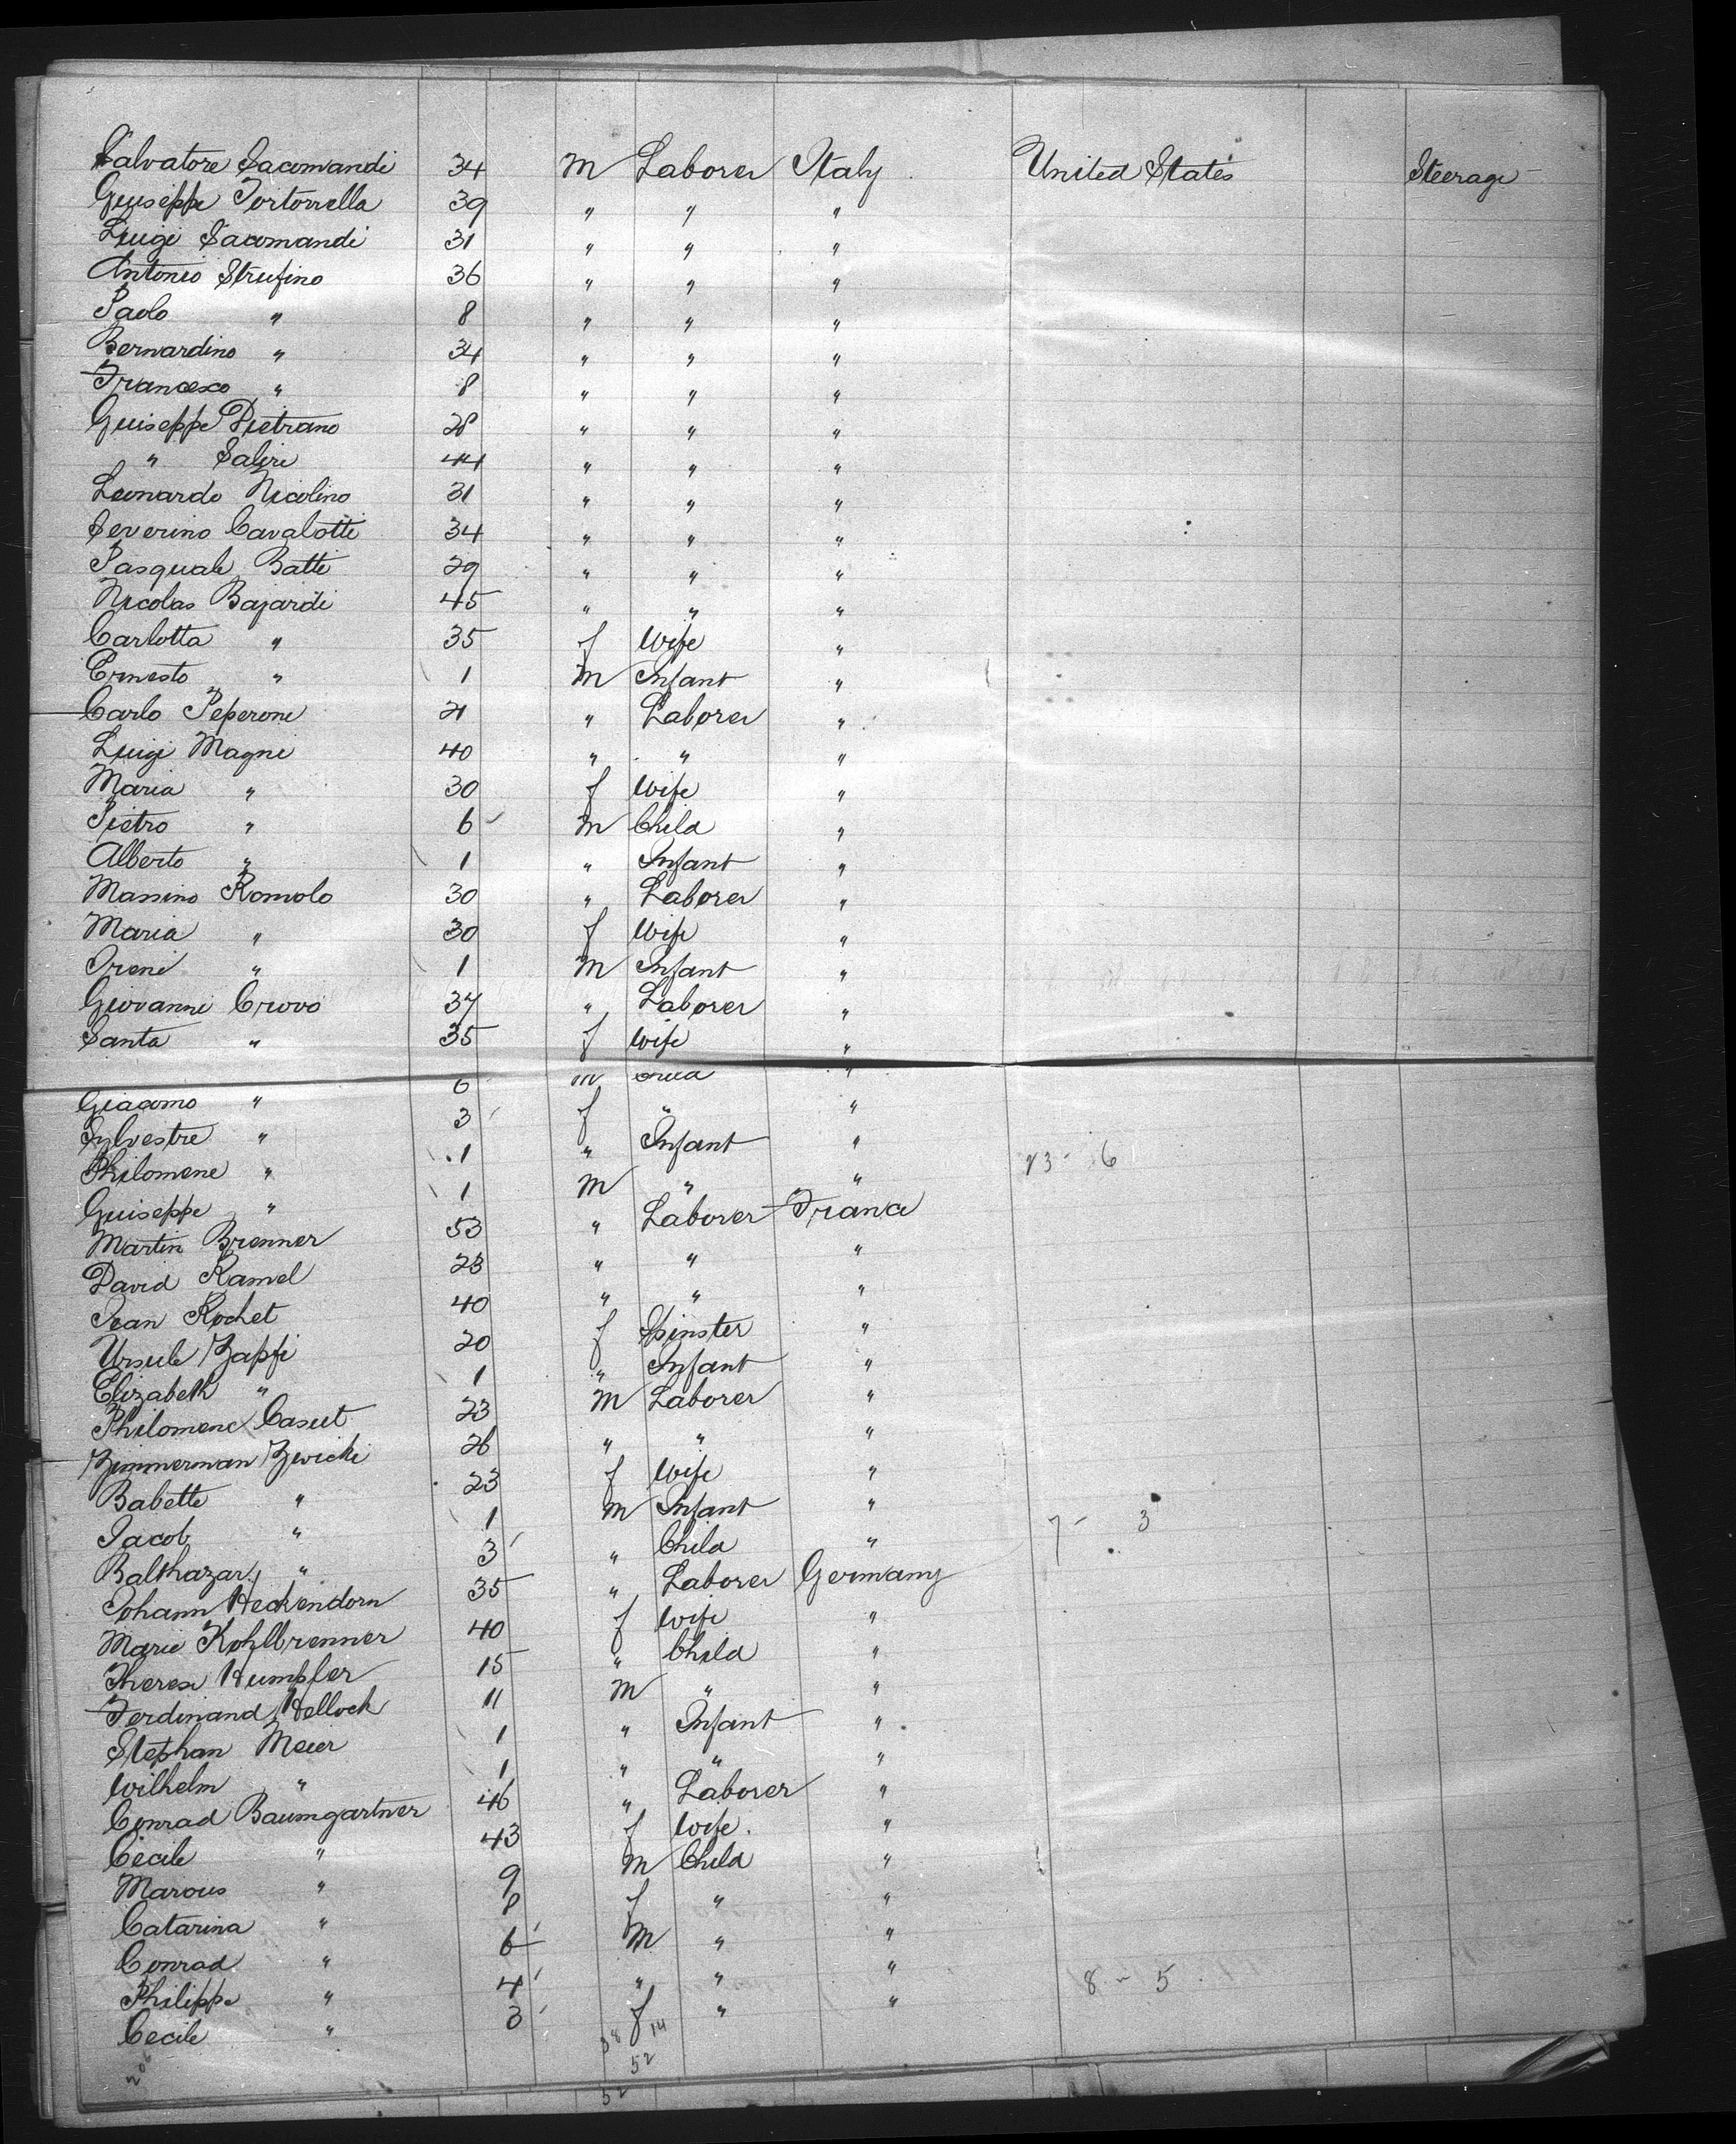 Salvatore Sacomandi 34 m Laborer Italy United States Steerage
Guiseppe Tortorella 39 " " "
Luigi Sacomandi 31 " " "
Antonio Strufino 36 " " "
Paolo " 8 " " "
Bernardino " 34 " " "
Francesco " 8 " " "
Guiseppe Pietrano 28 " " "
" Saliri 44 " " "
Leonardo Nicolino 31 " " "
Severino Cavalotti 34 " " "
Pasquale Batti 29 " " "
Nicolas Bajardi 45 " " "
Carlotta " 35 f Wife "
Ernesto " 1 m Infant "
Carlo Peperoni 21 " Laborer "
Luigi Magni 40 " " "
Maria " 30 f Wife "
Pietro " 6 m Child "
Alberto " 1 " Infant "
Massino Romolo 30 " Laborer "
Maria " 30 f Wife "
Ireni " 1 m Infant "
Giovanni Crovo 37 " Laborer "
Santa " 35 f Wife "
Giacomo " 6 m "
Sylvestre " 3 f " "
Philomene " 1 " Infant "
Guiseppe " 1 m " " 23 - 6
Martin Brenner 53 " Laborer France
David Ramel 23 " " "
Jean Rochet 40 " " "
Ursule Zapfi 20 f Spinster "
Elizabeth " 1 " Infant "
Philomene Casut 23 m Laborer "
Zimmerman Zwicki 26 " " "
Babette " 23 f Wife "
Jacob " 1 m Infant "
Balthazar " 3 " Child " 7 - 3
Johann Heckendorn 35 " Laborer Germany
Marie Kohlbrenner 40 f Wife "
Therese Humpfer 15 " Child "
Ferdinand Hellock 11 m " "
Stephan Meier 1 " Infant "
Wilhelm " 1 " " "
Conrad Baumgartner 46 " Laborer "
Cécile " 43 f Wife "
Marcus " 9 m Child "
Catarina " 8 f " "
Conrad " 6 m " "
Philippe " 4 " " "
Cecile " 3 f " " 8 - 5
38 14
52
52